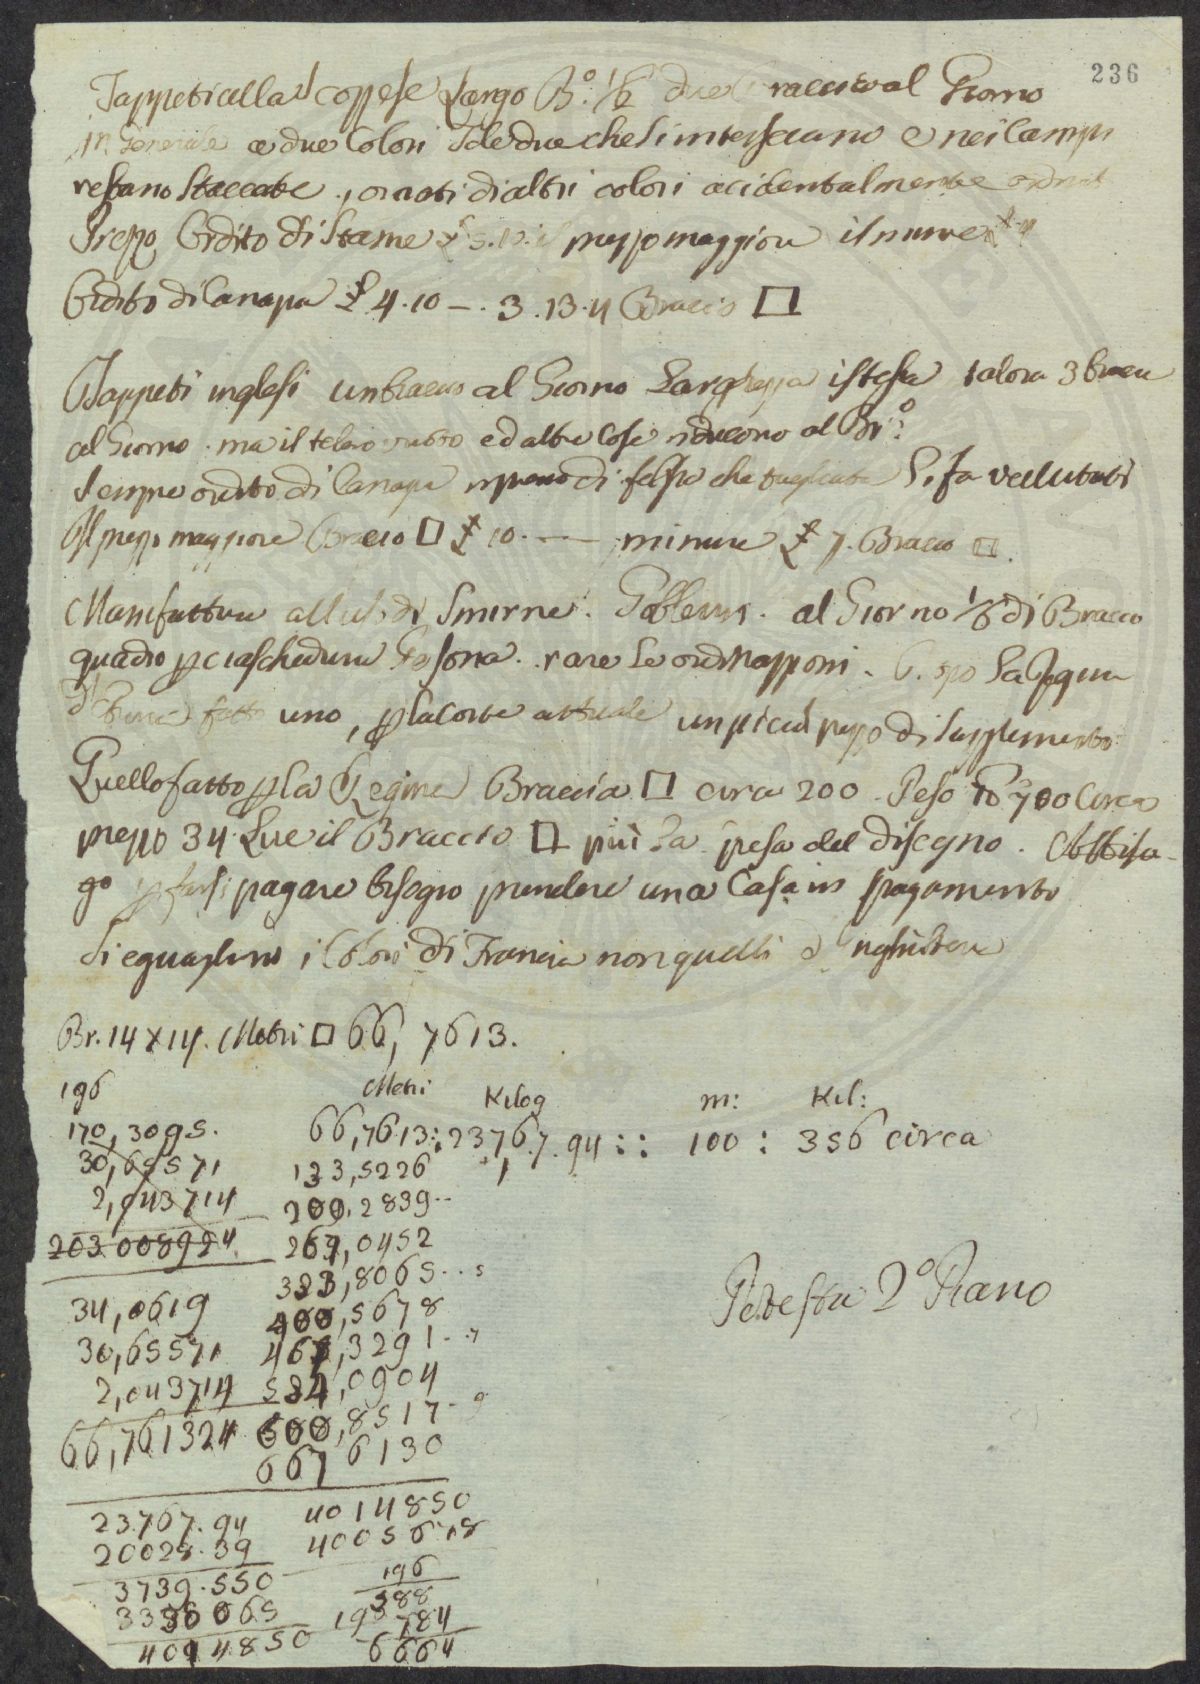 236
Tappeti alla Scozzese Largo B.º ½ due al Giorno
in Generale a due Colori Tele due che si intersecano e nei Campi
restano Staccate, ornati di altri colori acidentalmente
Prezzo Ordito di Stame il prezzo maggiore il minore
Ordito di Canapa £ 4.10 —. 3.13.4 Braccio □
Tappeti inglesi un braccio al Giorno Larghezza istessa talora 3 bracci
al Giorno. ma il telaio ed altre Cose riducono al Br.º
Sempre ordito di Canapa di felpa che tagliata Si fa vellutati
Il prezzo maggiore Braccio □ £ 10. — minore £ 7. Braccio □.
Manifattura all'uso di Smirne. Goblems. al Giorno 1/6 di Braccio
quadro p ciascheduna Persona. rare le ordinazzioni. La Regina
fatto uno, p la Corte attuale un picciol pezzo di Supplemento
Quello fatto p la Regina Braccia □ circa 200. Peso 700 Circa
prezzo 34 Lire il Braccio □ più la spesa del disegno. Abbiso-
go p farsi pagare bisogno prendere una Casa in pagamento
Si eguagliano i Colori di Francia non quelli d'Inghilterra
Br. 14 x 14. Metri □ 66, 7613.
196 Metri Kilog m: Kil:
170,3095. 66,7613:23767.94:: 100: 356 circa
30,65571 133,5226
2,043714 200,2839..
203 008924 267,0452
333,8065..5
34,0619 400,5678
30,65571 467,3291..7
2,043714 534,0904
66,761324 600,8517-9
667 6130
23767.94 4014850
20028.39 4005678
3739.550 196
3338065 588
4014850 784
6664
Potestà 2º Piano